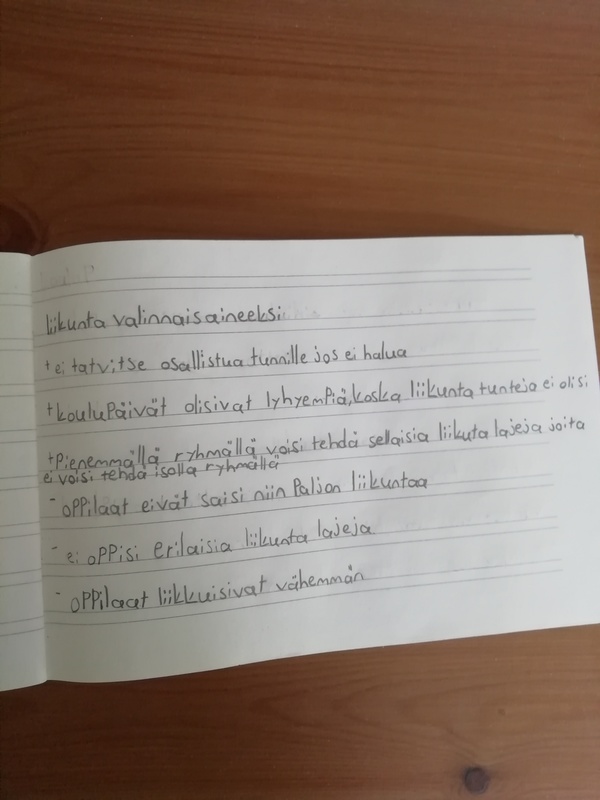 liikunta valinnaisaineeksi
+ ei tatvitse osallistua tunnille jos ei halua
+ koulupäivät olisivat lyhyempiä, koska liikunta tunteja ei olisi
+ Pienemmällä ryhmällä voisi tehdä sellaisia liikuta lajeja joita
ei voisi tehdä isolla ryhmällä
- oppilaat eivät saisi niin paljon liikuntaa
- ei oppisi erilaisia liikunta lajeja
- oppilaat liikkuisivat vähemmän